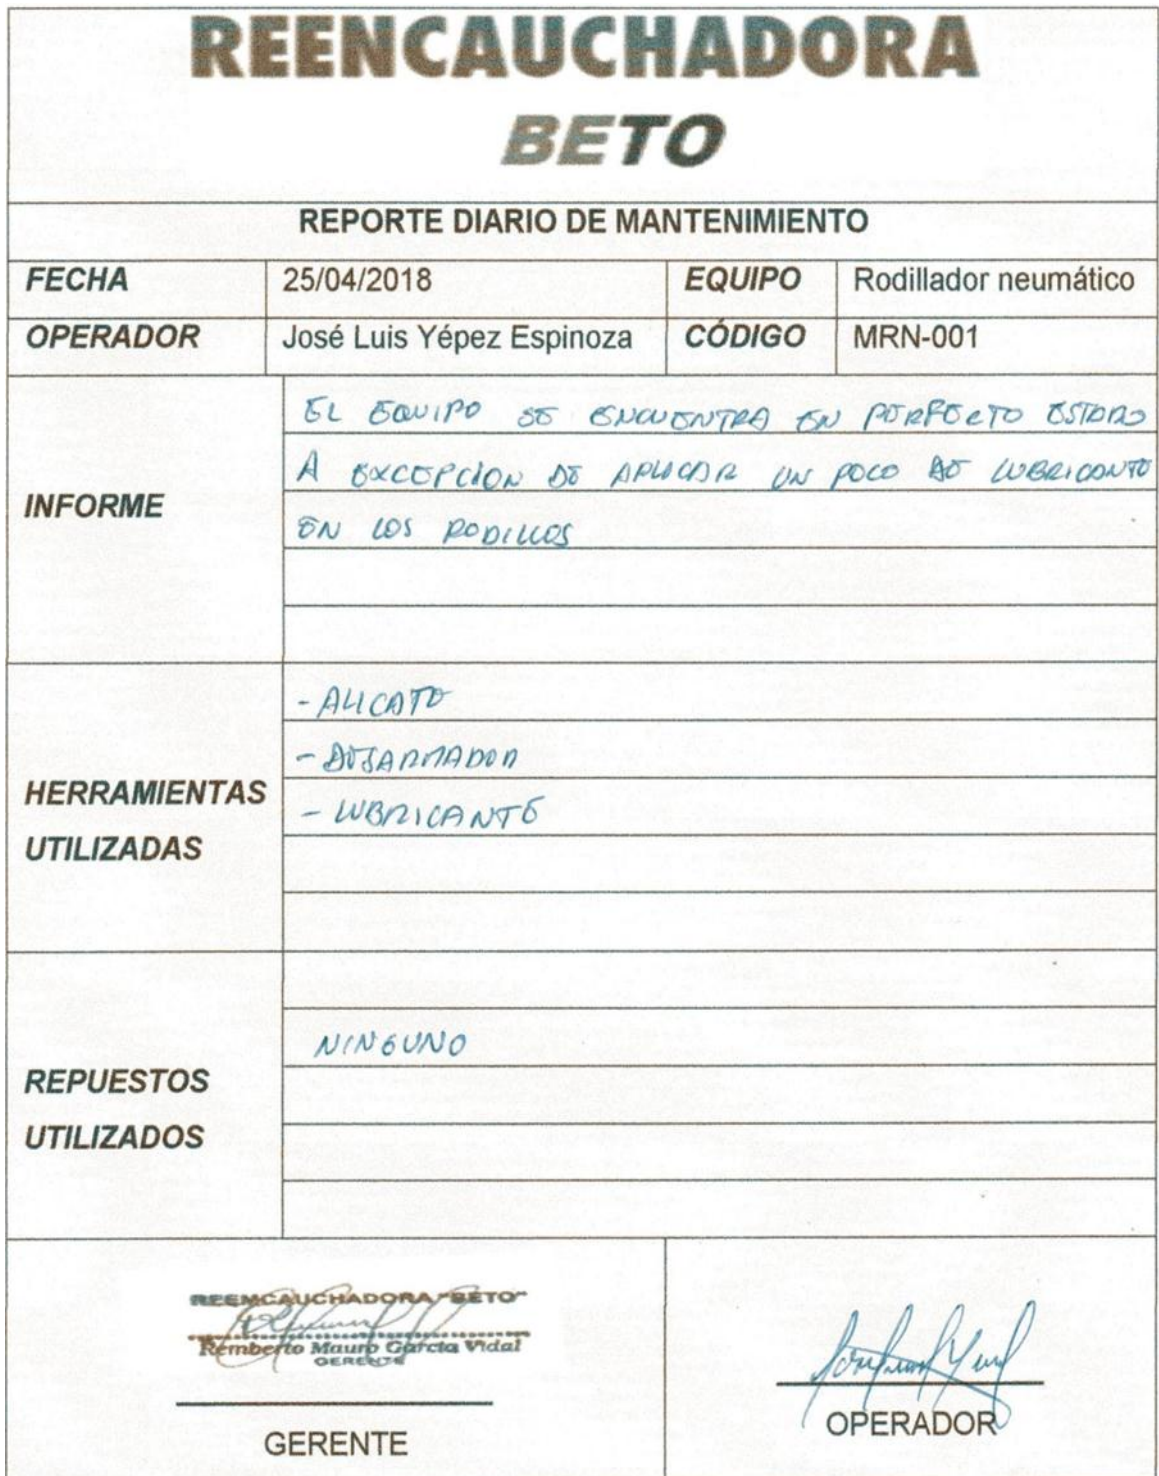 REENCAUCHADORA
BETO
REPORTE DIARIO DE MANTENIMIENTO
FECHA 25/04/2018 EQUIPO Rodillador neumático
OPERADOR José Luis Yépez Espinoza CÓDIGO MRN-001
INFORME
EL EQUIPO SE ENCUENTRA EN PERFECTO ESTADO
A EXCEPCION DE APLICAR UN POCO DE LUBRICANTE
EN LOS RODILLOS
HERRAMIENTAS
UTILIZADAS
- ALICATE
- DESARMADOR
- LUBRICANTE
REPUESTOS
UTILIZADOS
NINGUNO
REENCAUCHADORA "BETO"
Remberto Mauro García Vidal
GERENTE
GERENTE
OPERADOR